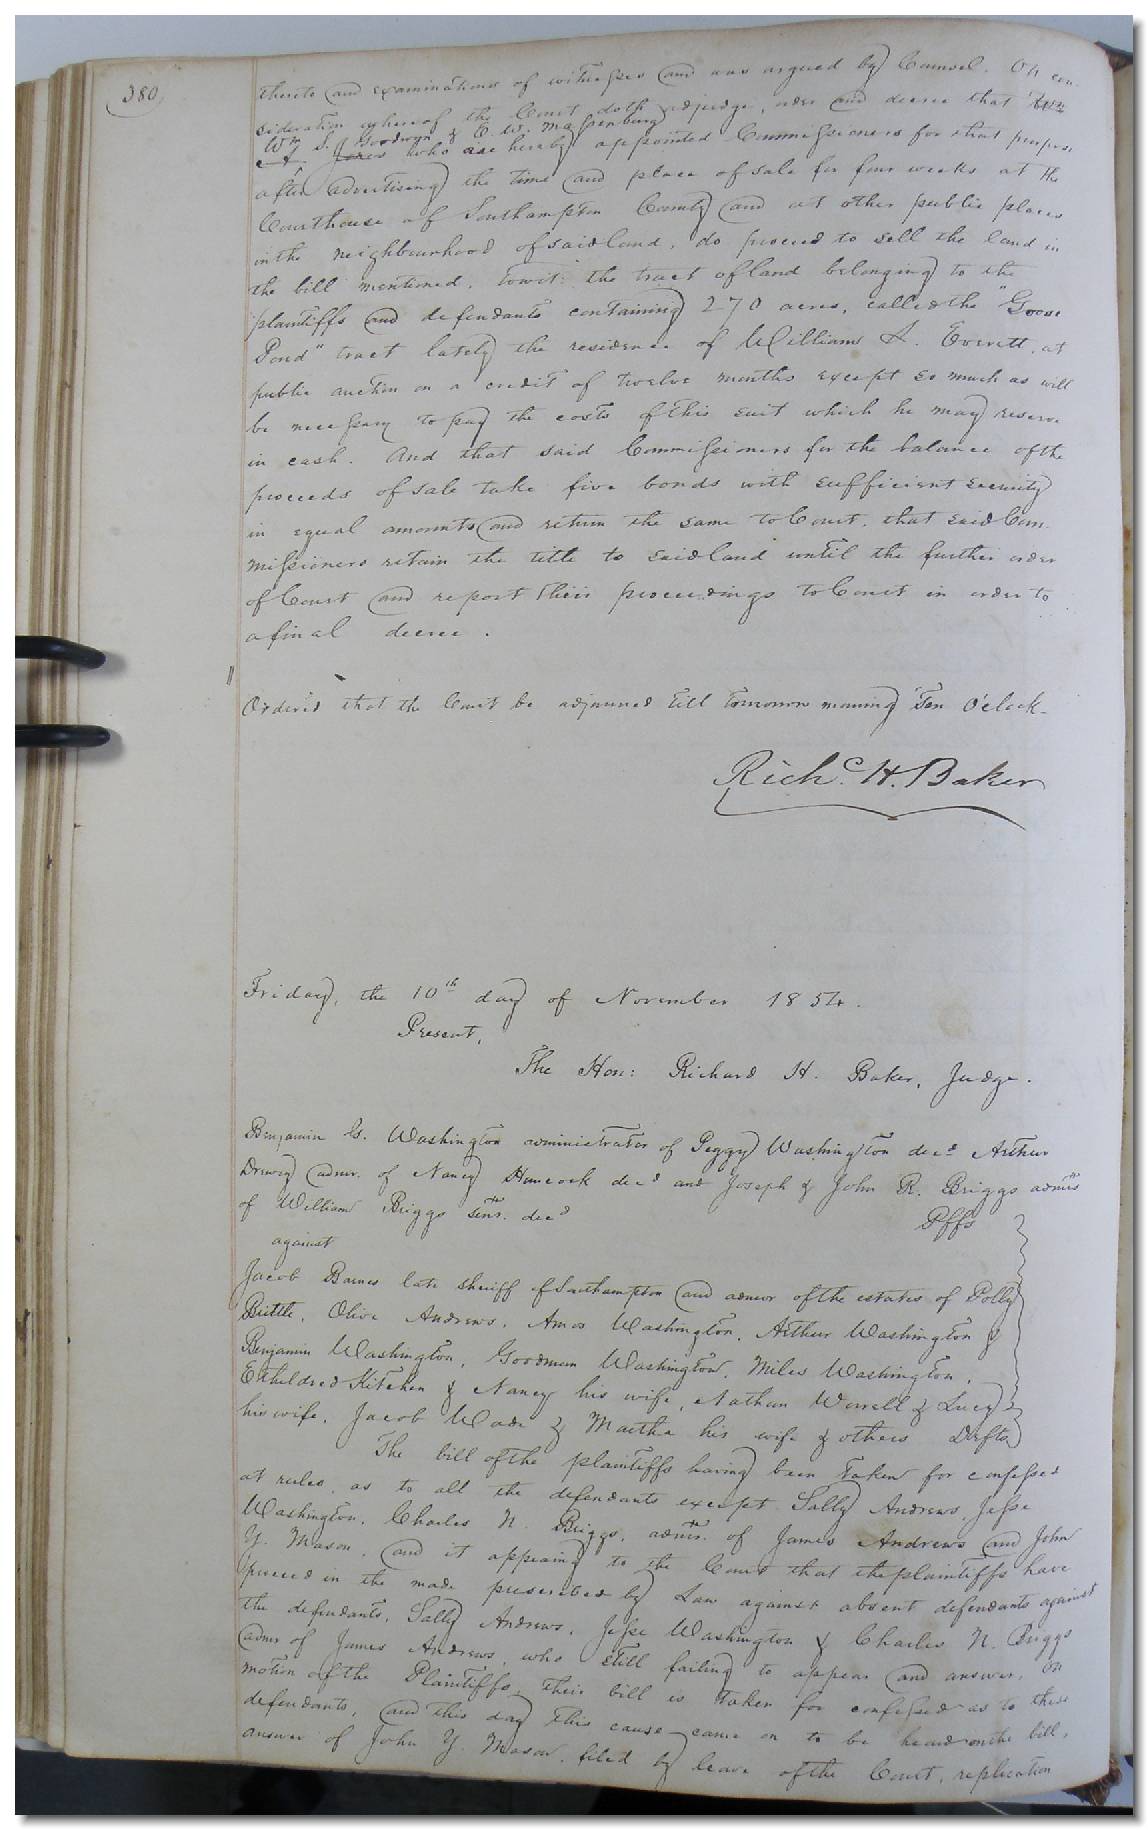 380
thereto and examinations of witnesses and was argued by Counsel. On con
sideration whereof the Court doth adjudge, order and decree that
Wm S. Goodwyn & C. W. Massenburg
who are hereby appointed Commissioners for that purpose
after advertising the time and place of sale for four weeks at the
Courthouse of Southampton County and at other public places
in the neighbourhood of said land, do proceed to sell the land in
the bill mentioned, towit: the tract of land belonging to the
plaintiffs and defendants containing 270 acres, called the "Goose
Pond" tract lately the residence of William A. Everett, at
public auction on a credit of twelve months except so much as will
be necessary to pay the costs of this suit which he may reserve
in cash. And that said Commissioners for the balance of the
proceeds of sale take five bonds with sufficient security
in equal amounts and return the same to Court, that said Com
missioners retain the title to said land until the further order
of Court and report their proceedings to Court in order to
a final decree.
Ordered that the Court be adjourned till tomorrow morning Ten O'clock.
Richd. H. Baker
Friday, the 10th day of November 1854.
Present,
The Hon: Richard H. Baker, Judge.
Benjamin G. Washington administrator of Peggy Washington decd Arthur
Drewry admr. of Nancy Hancock decd and Joseph & John R. Briggs admrs
of William Briggs senr. decd Plffs
against
Jacob Barnes late sheriff of Southampton and admor of the estates of Polly
Brittle, Olive Andrews, Amos Washington, Arthur Washington &
Benjamin Washington, Goodman Washington, Miles Washington,
Etheldred Kitchen & Nancy his wife, Nathan Worrell & Lucy
his wife, Jacob Wade & Martha his wife & others Defts
The bill of the plaintiffs having been taken for confessed
at rules, as to all the defendants except Sally Andrews, Jesse
Washington, Charles N. Briggs, admr. of James Andrews and John
Y. Mason, and it appearing to the Court that the plaintiffs have
proceed in the mode prescribed by Law against absent defendants against
the defendants, Sally Andrews, Jesse Washington & Charles N. Briggs
admr of James Andrews, who still failing to appear and answer, on
motion of the Plaintiffs, their bill is taken for confessed as to these
defendants, and this day this cause came on to be heard on the bill,
answer of John Y. Mason, filed by leave of the Court, replication